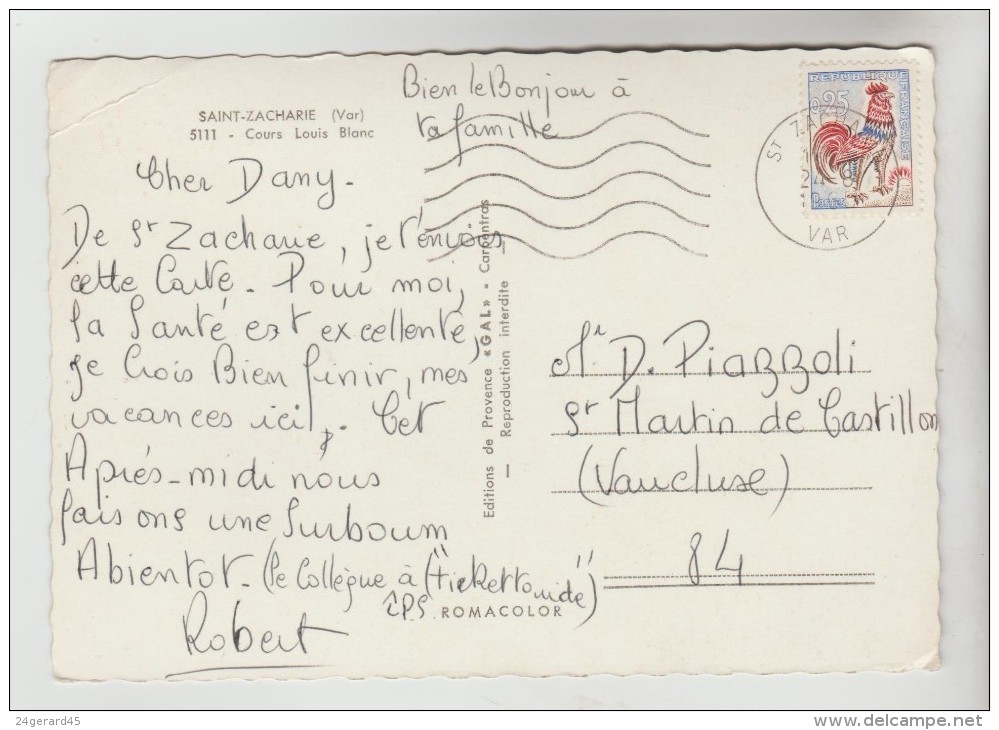 SAINT-ZACHARIE (Var)
5111 - Cours Louis Blanc
Bien le Bonjour à
ta famille
Cher Dany-
De St Zacharie, je t'envois
cette Carte. Pour moi,
la Santé est excellente,
Je Crois Bien finir, mes
vacances ici,. Cet
Après-midi nous
faisons une Surboum
Abientot- (le Collègue à
Robert
Editions de Provence «GAL» - Carpentras
— Reproduction interdite —
ROMACOLOR
REPUBLIQUE FRANÇAISE
0,25
Postes
ST ZACHARIE
24-8
VAR
Mr D. Piazzoli
St Martin de Castillon
(Vaucluse)
84
24gerard45
delcampe.net